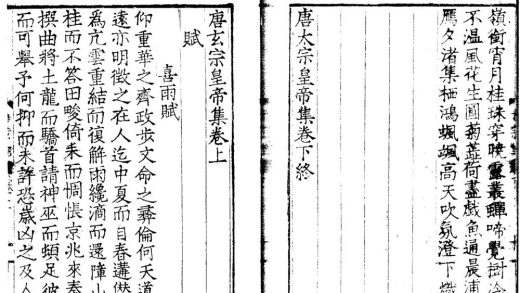 嶺銜宵月桂珠穿曉露叢蟬啼覺樹冷
不溫風花生圓菊蕋荷盡戲魚通晨浦
鴈夕渚集栖鴻颯颯高天吹氛澄下熾
唐太宗皇帝集卷下終
唐玄宗皇帝集卷上
賦
喜雨賦
仰重華之齊政歩文命之彛倫何天道
遠亦明徵之在人迄中夏而自春遘
為亢雲重結而復解雨纔滴而還障山
桂而不答田畯倚耒而惆悵京兆來奏
撰曲將土龍而驕首請神巫而頻足彼
而可舉予何抑而未許恐歲凶之及人